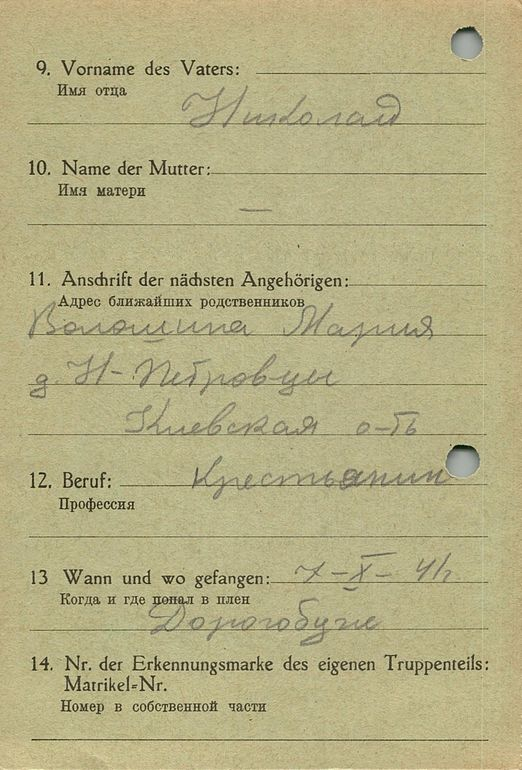 9. Vorname des Vaters:
Имя отца
Николай
10. Name der Mutter:
Имя матери
—
11. Anschrift der nächsten Angehörigen:
Адрес ближайших родственников
Волошина Мария
д. Н-Петровцы
Киевская о-ть
12. Beruf: Крестьянин
Профессия
13 Wann und wo gefangen: 7-X-41г.
Когда и где попал в плен
Дорогобуже
14. Nr. der Erkennungsmarke des eigenen Truppenteils:
Matrikel-Nr.
Номер в собственной части